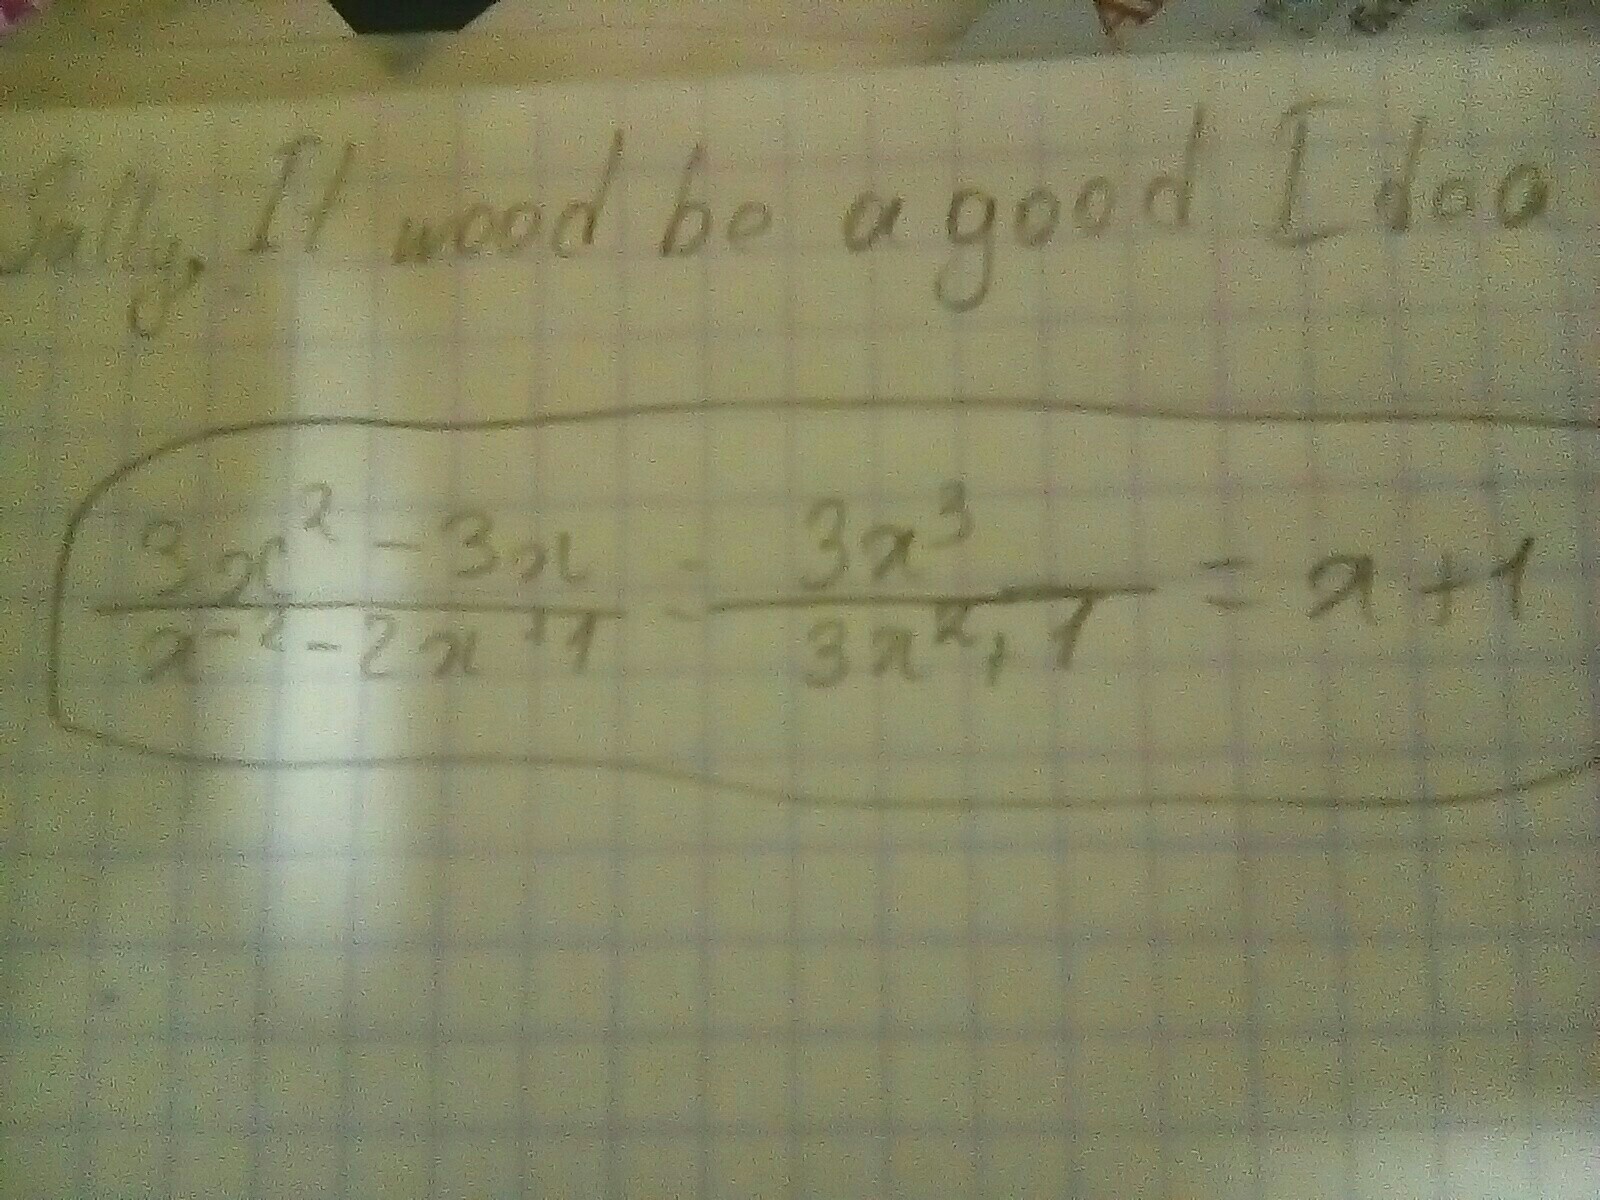 Sally, It wood be a good I dea
3x² - 3x / x² - 2x + 1 = 3x³ / 3x² + 1 = x + 1